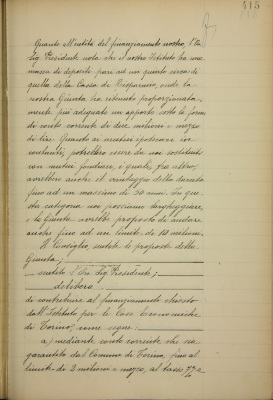 415
Quando l'entità del finanziamento nostro, l'On.
Sig. Presidente nota che il nostro Istituto ha una
massa di depositi pari ad un quinto circa di
quella della Cassa di Risparmio, onde la
nostra Giunta ha ritenuto proporzionata-
mente più adeguato un apporto sotto la forma
di conto corrente di due milioni e mezzo
di lire. Quanto ai mutui ipotecari in
contanti, potrebbero essere da noi sostituiti
con mutui fondiari, i quali, fra altro,
avrebbero anche il vantaggio della durata
fino ad un massimo di 50 anni. In que-
sta categoria noi possiamo largheggiare,
e la Giunta avrebbe proposto di andare
anche fino ad un limite di 10 milioni.
Il Consiglio, sentite le proposte della
Giunta;
sentito l'On. Sig. Presidente;
delibera
di contribuire al finanziamento chiesto
dall'Istituto per le Case Economiche
di Torino, come segue:
a) mediante conto corrente che sia
garantito dal Comune di Torino, fino al
limite di 2 milioni e mezzo, al tasso